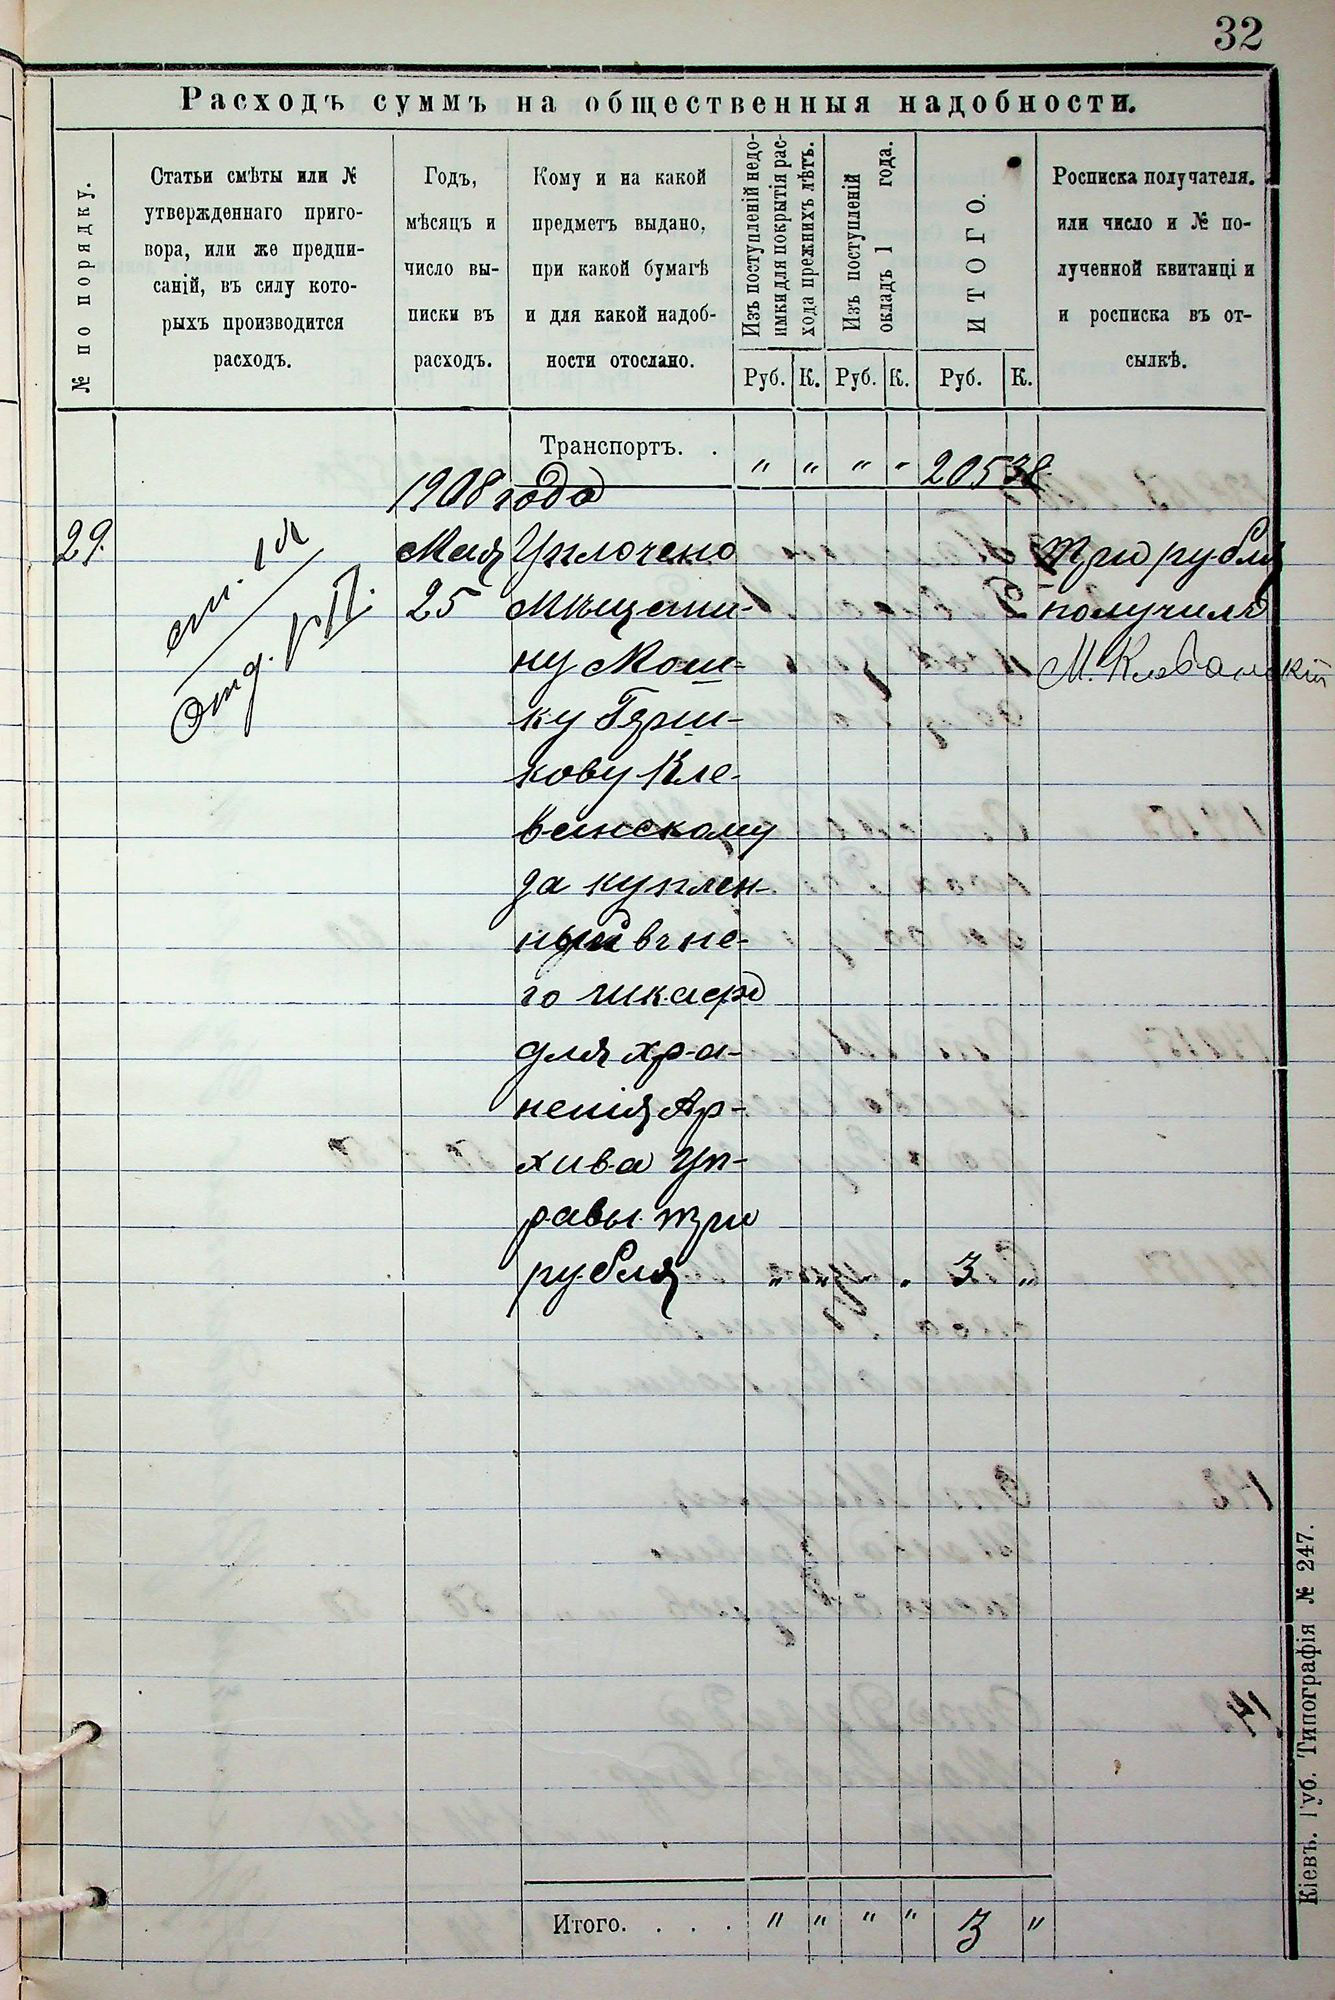 32
Расходъ суммъ на общественныя надобности.
№ по порядку.
Статьи смѣты или №
утвержденнаго приго-
вора, или же предпи-
саній, въ силу кото-
рыхъ производится
расходъ.
Годъ,
мѣсяцъ и
число вы-
писки въ
расходъ.
Кому и на какой
предметъ выдано,
при какой бумагѣ
и для какой надоб-
ности отослано.
Изъ поступленій недо-
имки для покрытія рас-
хода прежнихъ лѣтъ.
Изъ поступленій
окладъ 1 года.
ИТОГО.
Росписка получателя.
или число и № по-
лученной квитанці и
и росписка въ от-
сылкѣ.
Руб. К. Руб. К. Руб. К.
Транспортъ. . " " " " 205 38
1908 года
29. ст. 1я
отд. VII.
Мая
25
Уплочено
мѣщани-
ну Мош-
ку Герш-
кову Кле-
ванскому
за куплен-
ный въ не-
го шкафъ
для хра-
ненія Ар-
хива Уп-
равы три
рубля " " " " 3 "
три рубля
получилъ
М. Клеванскій
Итого. . . . " " " " 3 "
Кіевъ. Губ. Типографія № 247.